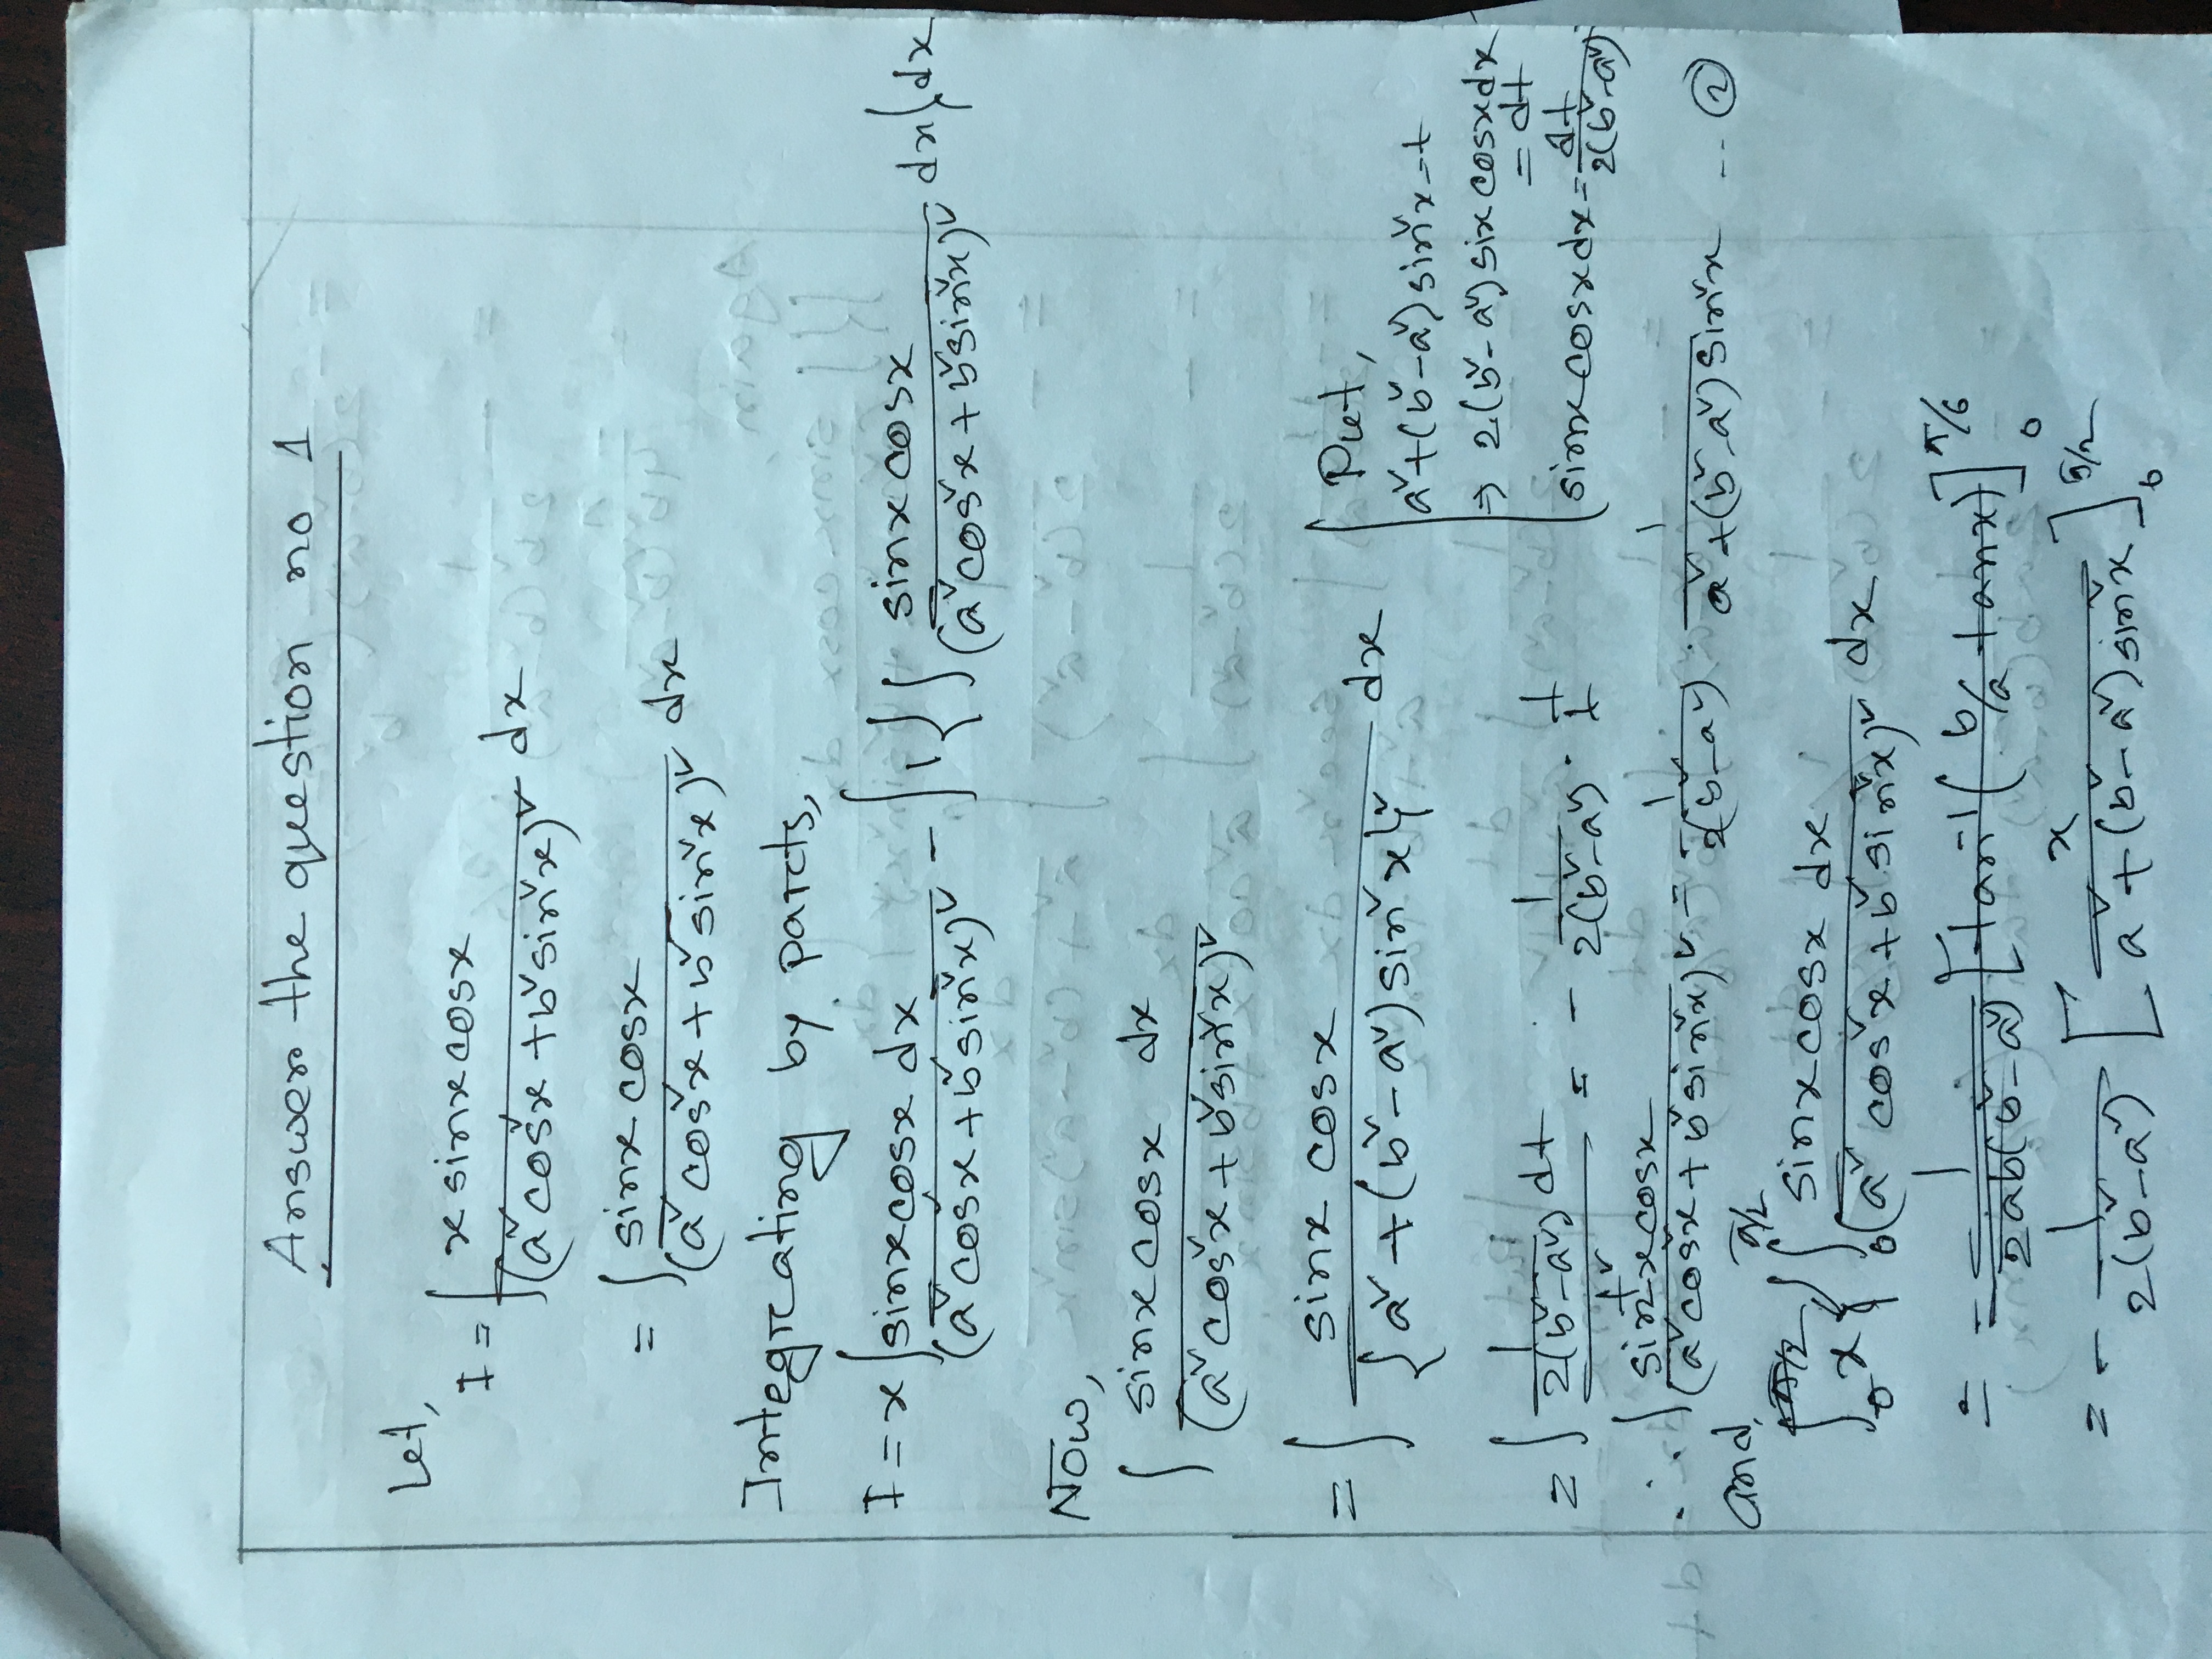 Answer the question no 1
Let,
I = ∫ x sinx cosx / (a² cos²x + b² sin²x)² dx
= ∫ sinx cosx / (a² cos²x + b² sin²x)² dx
Integrating by parts,
I = x ∫ sinx cosx dx / (a² cos²x + b² sin²x)² − ∫ 1 { ∫ sinx cosx / (a² cos²x + b² sin²x)² dx } dx
Now,
∫ sinx cosx dx / (a² cos²x + b² sin²x)²
= ∫ sinx cosx / {a² + (b² − a²) sin²x}² dx
Put,
a² + (b² − a²) sin²x = t
⇒ 2(b² − a²) six cosx dx
= dt
sinx cosx dx = dt / 2(b² − a²)
= ∫ 1 / 2(b² − a²) dt / t² = − 1 / 2(b² − a²) · 1 / t
∴ ∫ sinx cosx / (a² cos²x + b² sin²x)² = 1 / 2(b² − a²) · 1 / a² + (b² − a²) sin²x -- ②
and,
x ∫₀^π/2 sinx cosx dx / (a² cos²x + b² sin²x)² dx
= − 1 / 2ab(b² − a²) [tan⁻¹ (b/a tanx)]₀^π/6
= − 1 / 2(b² − a²) [x / a² + (b² − a²) sin²x]₀^π/2